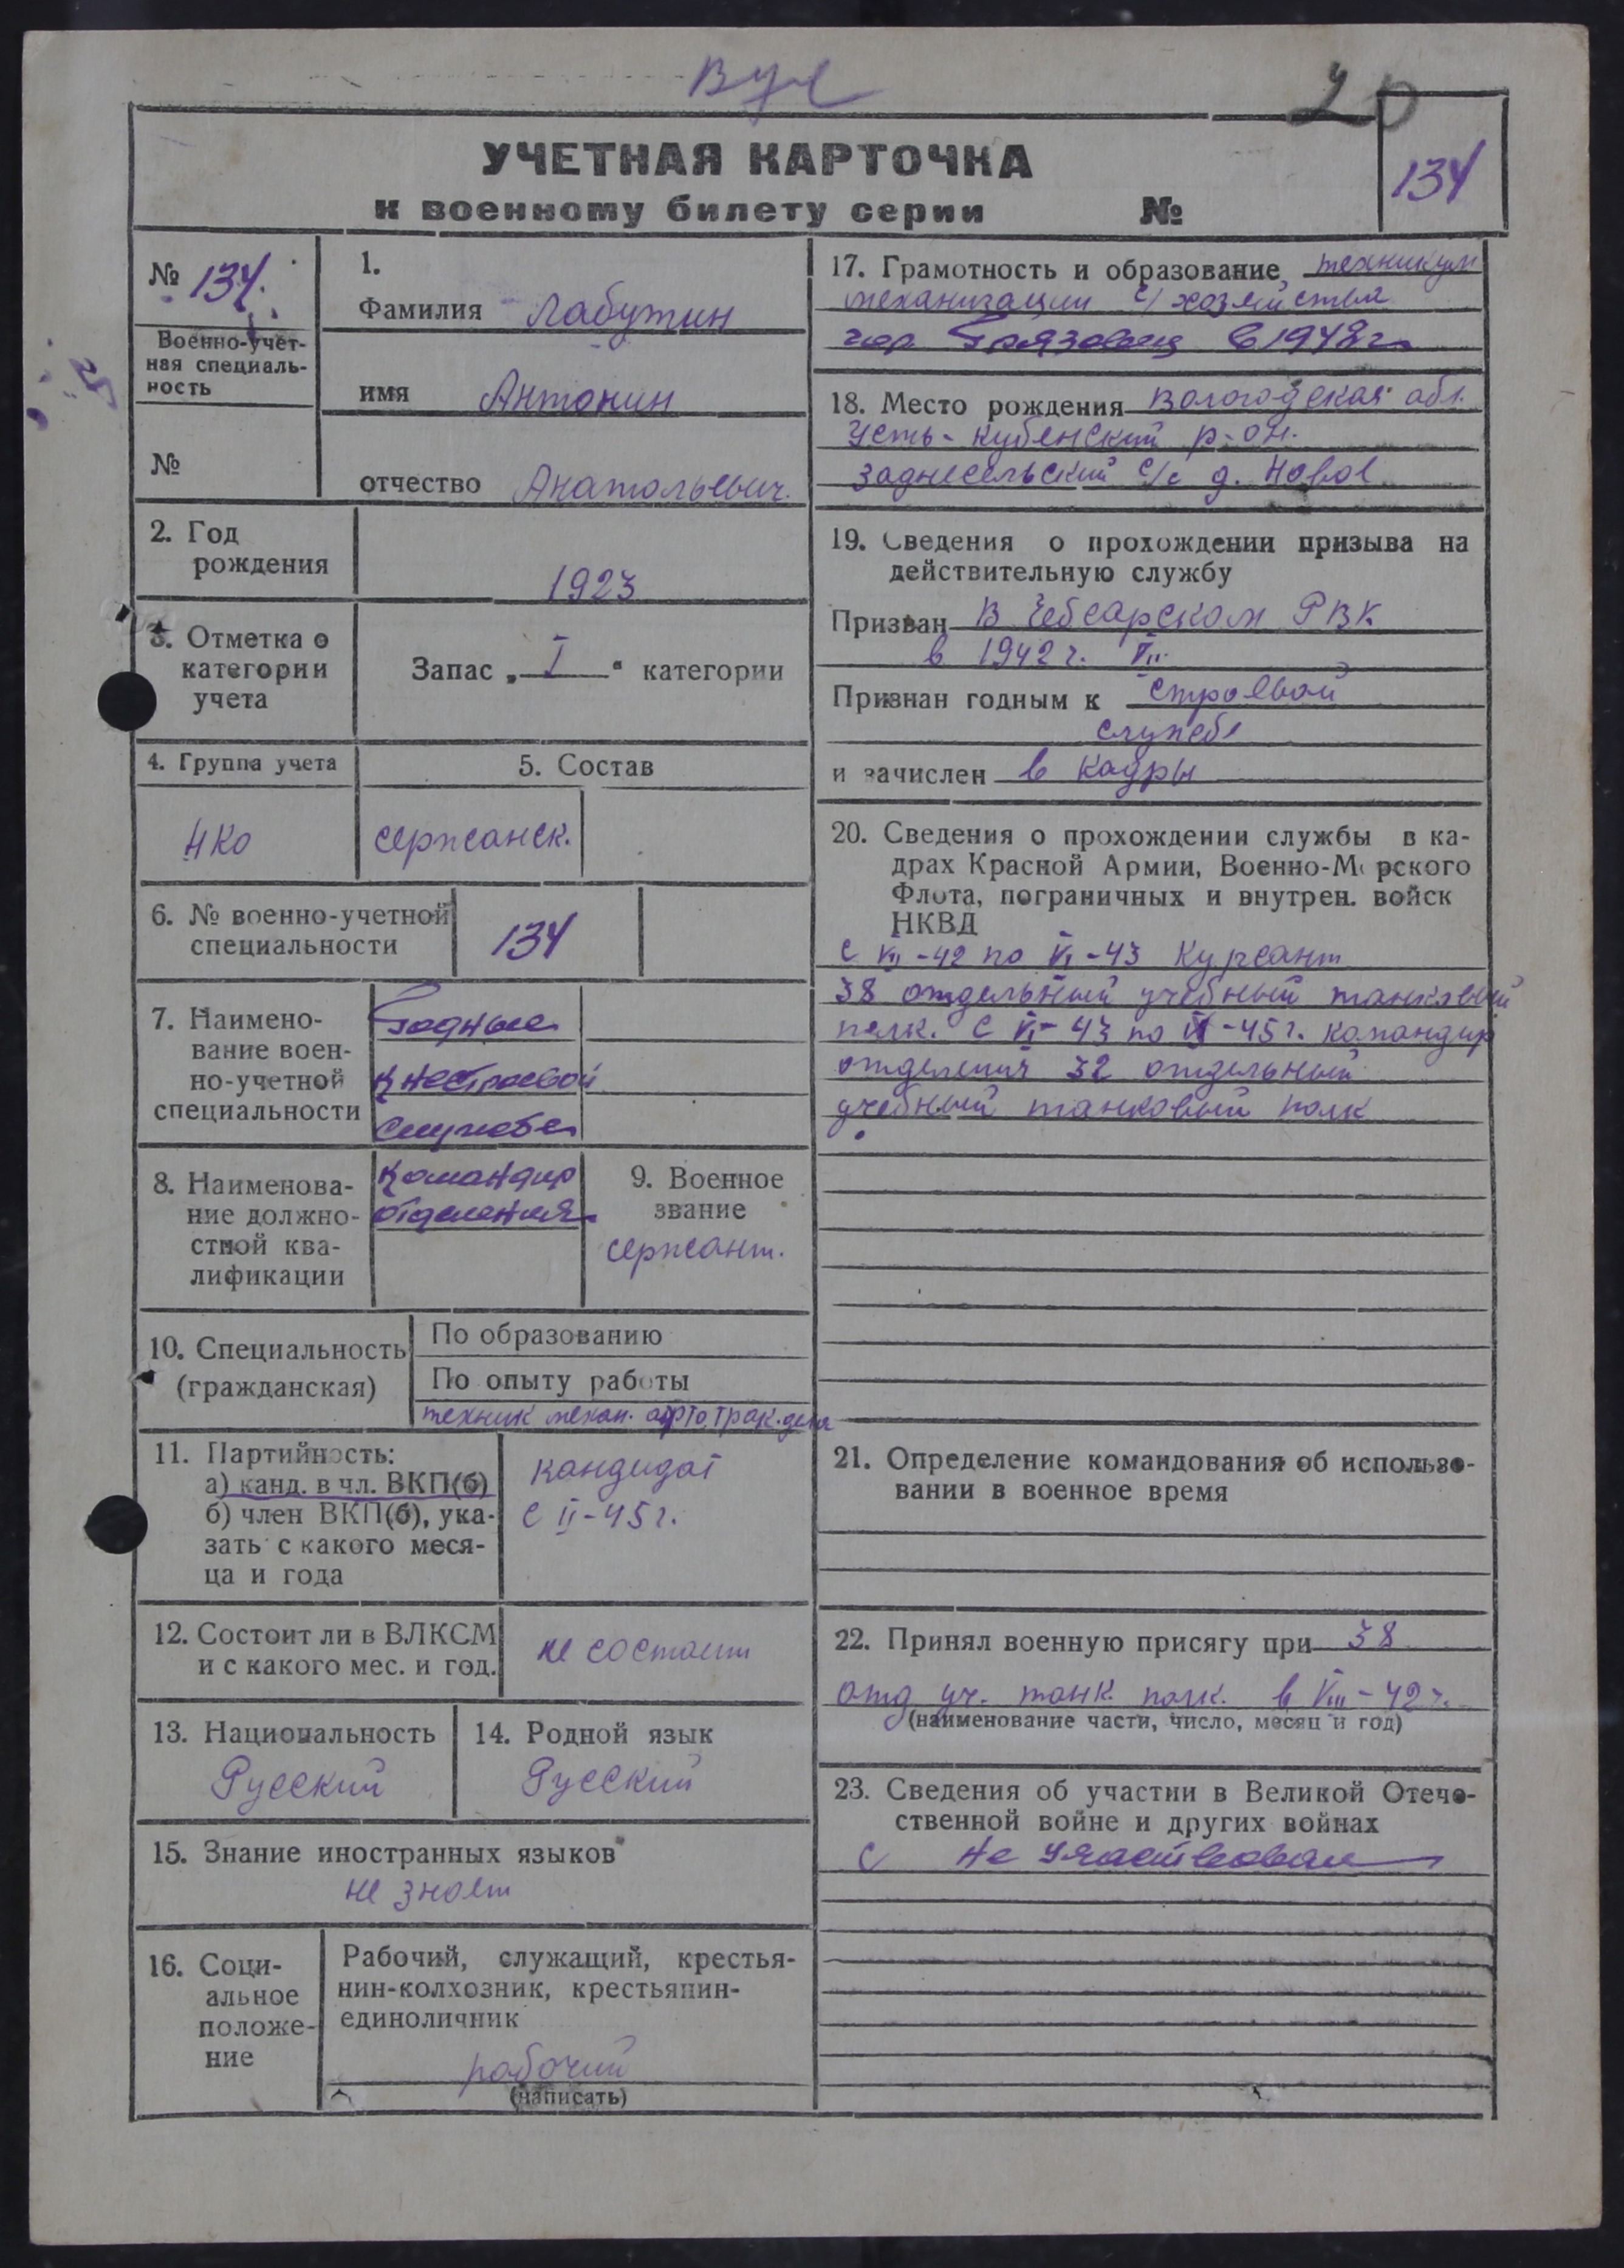 вус
20
УЧЕТНАЯ КАРТОЧКА
к военному билету серии №
134
№ 134.
Военно-учет-
ная специаль-
ность
№
1.
Фамилия Лабутин
имя Антонин
отчество Анатольевич.
2. Год
рождения
1923
3. Отметка о
категории
учета
Запас „ I “ категории
4. Группа учета
5. Состав
НКО
сержанск.
6. № военно-учетной
специальности
134
7. Наимено-
вание воен-
но-учетной
специальности
Годные
к нестроевой
службе
8. Наименова-
ние должно-
стной ква-
лификации
Командир
отделения
9. Военное
звание
сержант.
10. Специальность
(гражданская)
По образованию
По опыту работы
техник механ. авто.трак.дела
11. Партийность:
а) канд. в чл. ВКП(б)
б) член ВКП(б), ука-
зать с какого меся-
ца и года
кандидат
с II-45 г.
12. Состоит ли в ВЛКСМ
и с какого мес. и год.
не состоит
13. Национальность
Русский
14. Родной язык
Русский
15. Знание иностранных языков
не знает
16. Соци-
альное
положе-
ние
Рабочий, служащий, крестья-
нин-колхозник, крестьянин-
единоличник
рабочий
(написать)
17. Грамотность и образование техникум
механизации с/хозяйства
гор. Грязовец в 1948 г.
18. Место рождения Вологодская обл.
Усть-Кубенский р-он.
Заднесельский с/с д. Новое
19. Сведения о прохождении призыва на
действительную службу
Призван в Чебсарском РВК
в 1942 г. VII
Признан годным к строевой
службе
и зачислен в кадры
20. Сведения о прохождении службы в ка-
драх Красной Армии, Военно-Морского
Флота, пограничных и внутрен. войск
НКВД
с VII-42 по VI-43 Курсант
38 отдельный учебный танковый
полк. С VI-43 по -45 г. командир
отделения 32 отдельный
учебный танковый полк
21. Определение командования об использо-
вании в военное время
22. Принял военную присягу при 38
отд уч. танк. полк. в VIII-42 г.
(наименование части, число, месяц и год)
23. Сведения об участии в Великой Отече-
ственной войне и других войнах
с Не участвовал